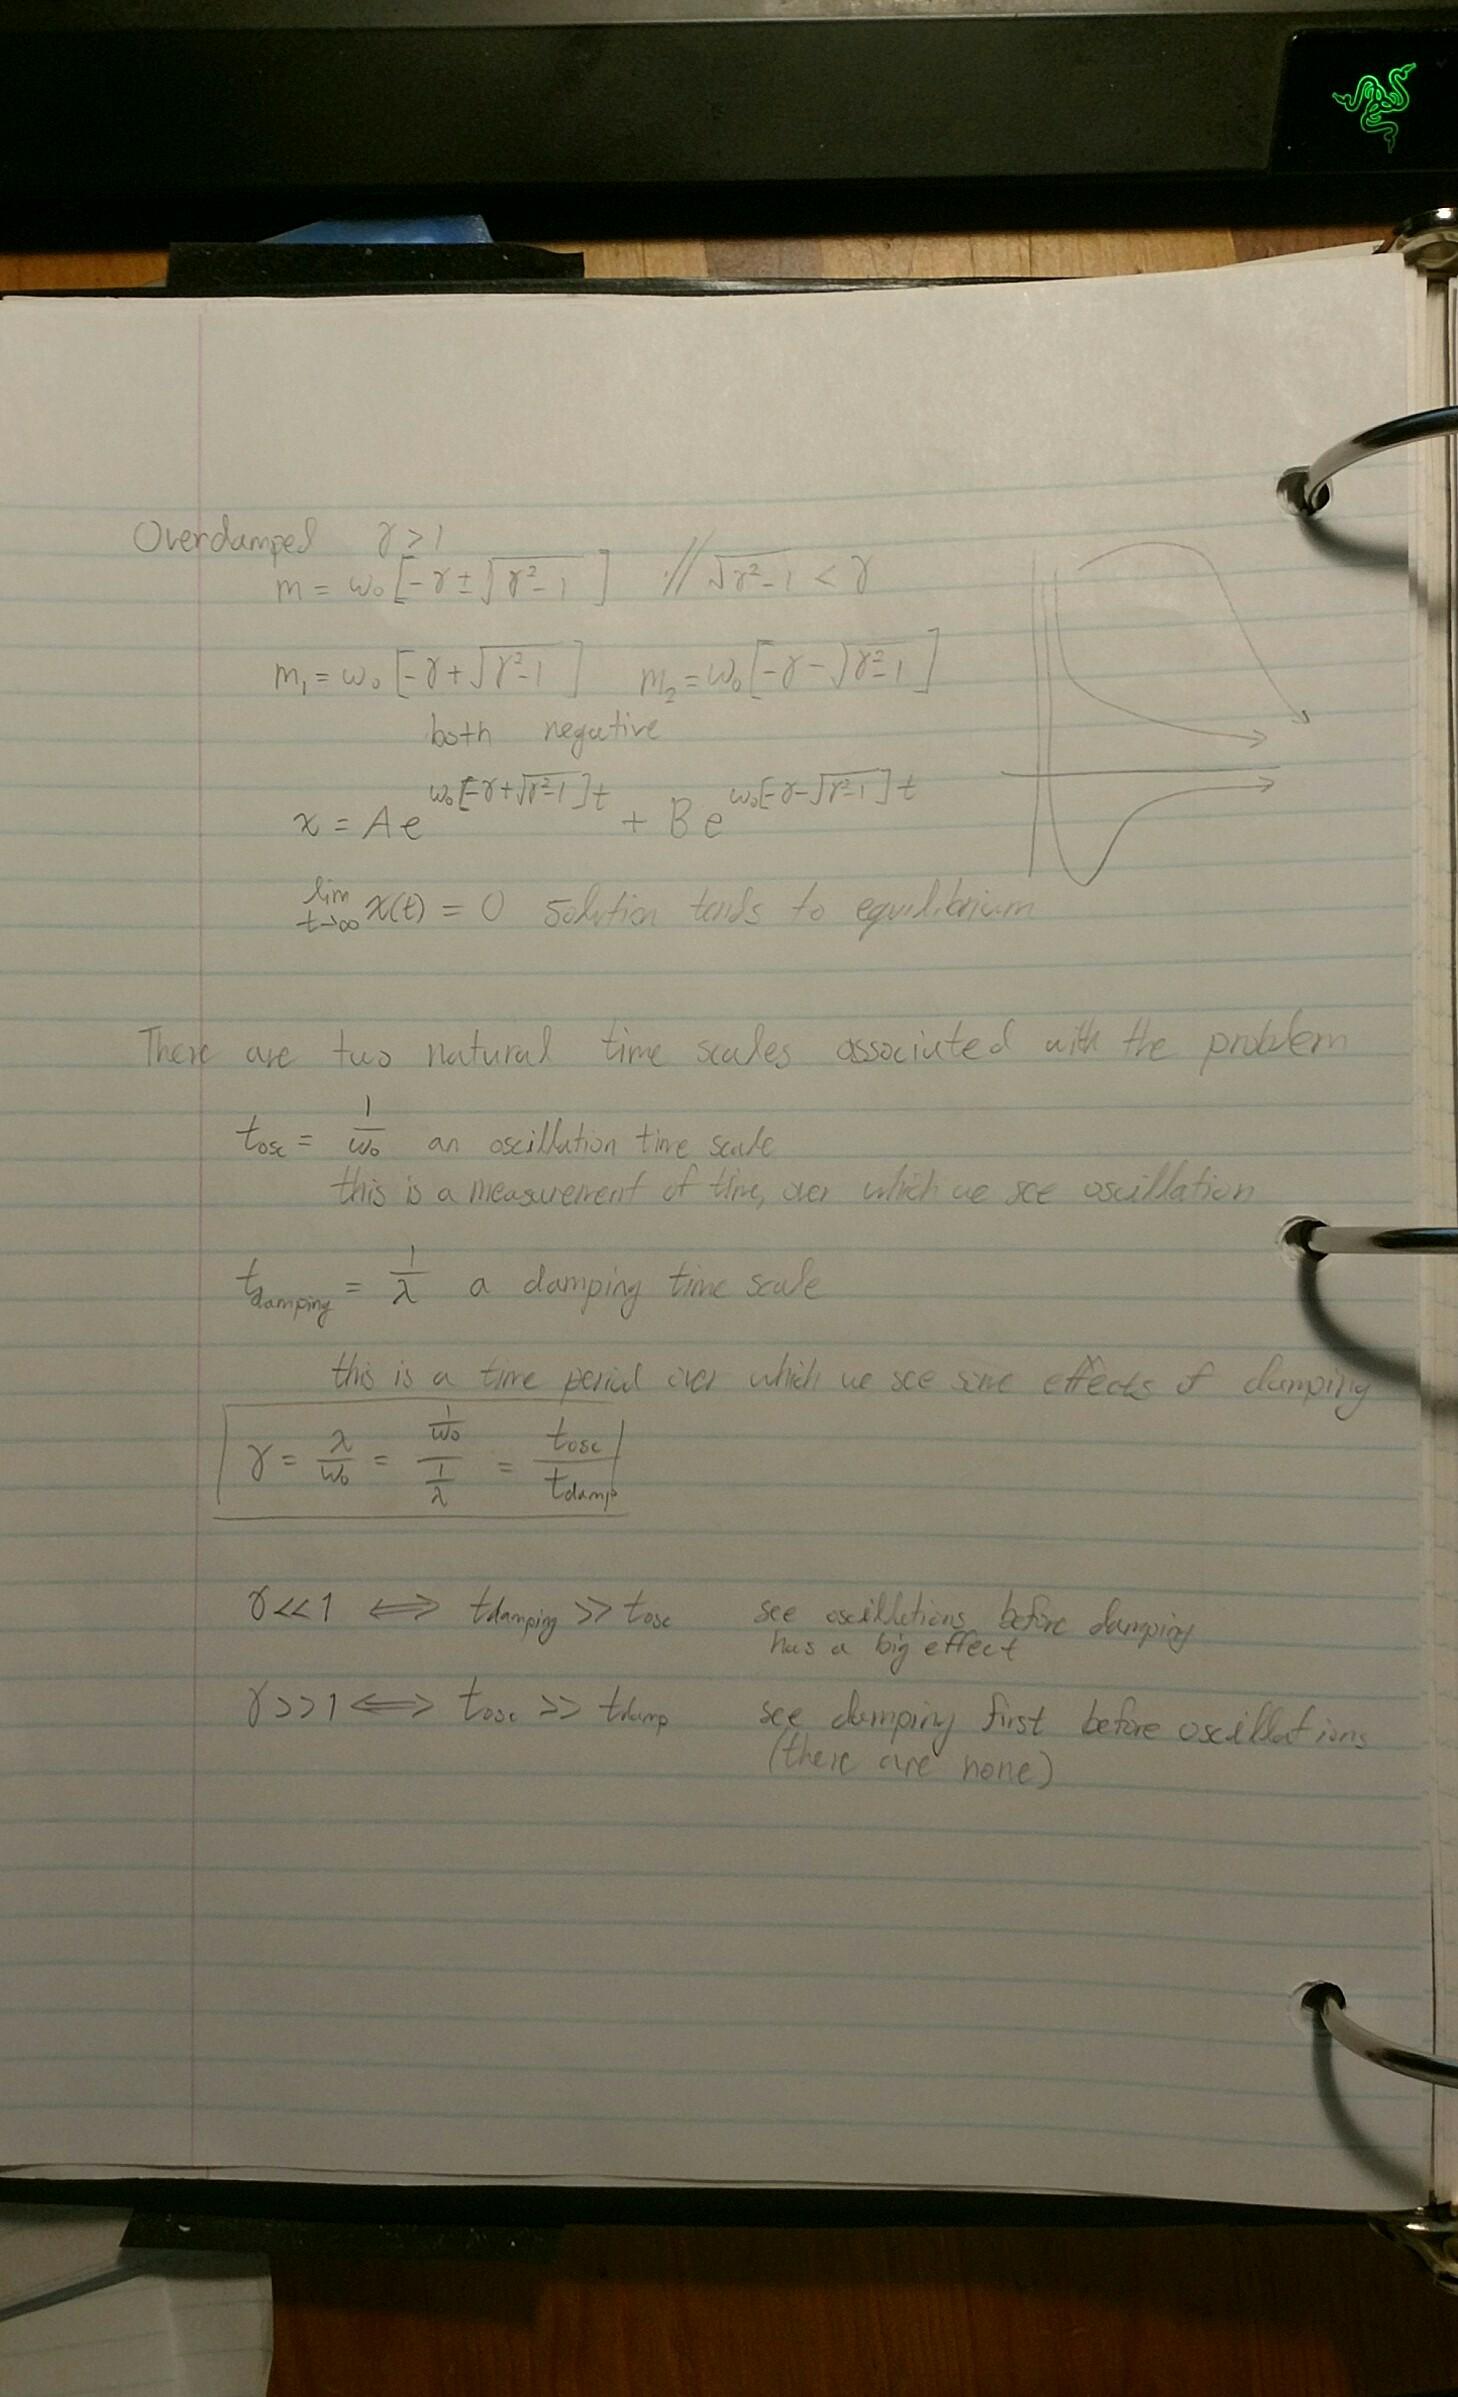 Overdamped γ > 1
m = ω₀[-γ ± √(γ²-1)] // √(γ²-1) < γ
m₁ = ω₀[-γ + √(γ²-1)] m₂ = ω₀[-γ - √(γ²-1)]
both negative
x = A e^(ω₀[-γ+√(γ²-1)]t) + B e^(ω₀[-γ-√(γ²-1)]t)
lim t→∞ x(t) = 0 solution tends to equilibrium
There are two natural time scales associated with the problem
t_osc = 1/ω₀ an oscillation time scale
this is a measurement of time, over which we see oscillation
t_damping = 1/λ a damping time scale
this is a time period over which we see some effects of damping
γ = λ/ω₀ = (1/ω₀)/(1/λ) = t_osc/t_damp
γ << 1 ⟺ t_damping >> t_osc see oscillations before damping
has a big effect
γ >> 1 ⟺ t_osc >> t_damp see damping first before oscillations
(there are none)